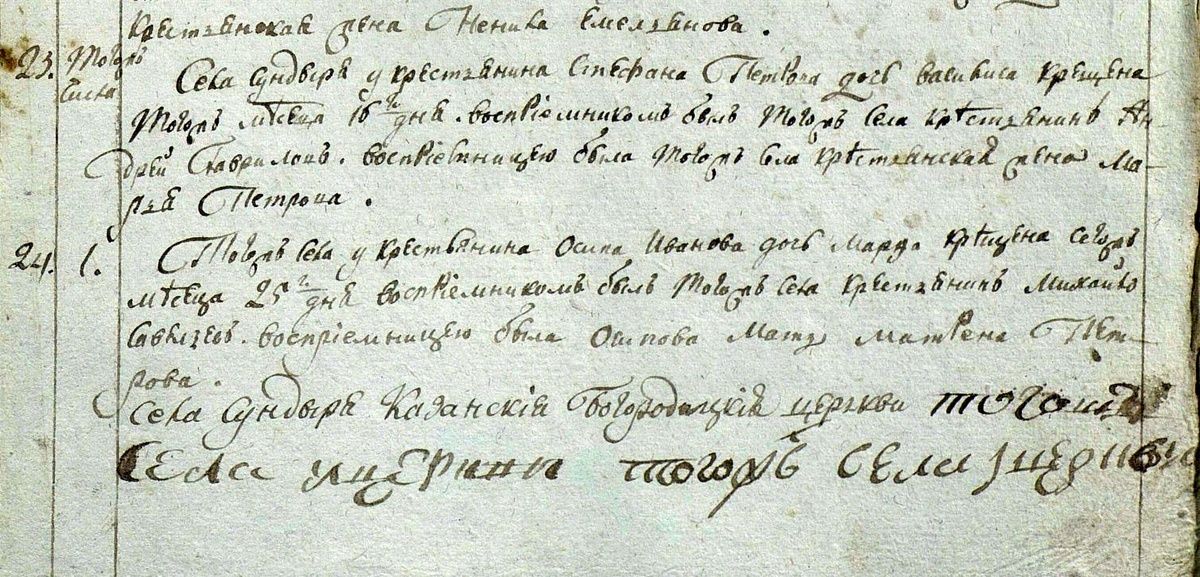 крестьянская жена Ненила Емельянова.
23. Тогожъ числа Села Сундыря у крестьянина Стефана Петрова дочь василиса крещена
тогожъ мѣсеца 16 го дня. воспрїемникомъ былъ тогожъ села крѣстьянинъ Ан-
дрей Гавриловъ. воспрїемницею была тогожъ села крѣстьянская жена Ма-
рья Петрова.
24. 1. Тогожъ села у крестьянина Осипа Иванова дочь Марѳа крѣщена сегожъ
мѣсеца 25 го дня воспрїемникомъ былъ тогожъ села крестьянинъ Михайло
Савельевъ. воспрїемницею была Осипова Мать матрена Пет-
рова.
Села Сундыря Казанскїя Богородицкїя церкви
села тогожъ села